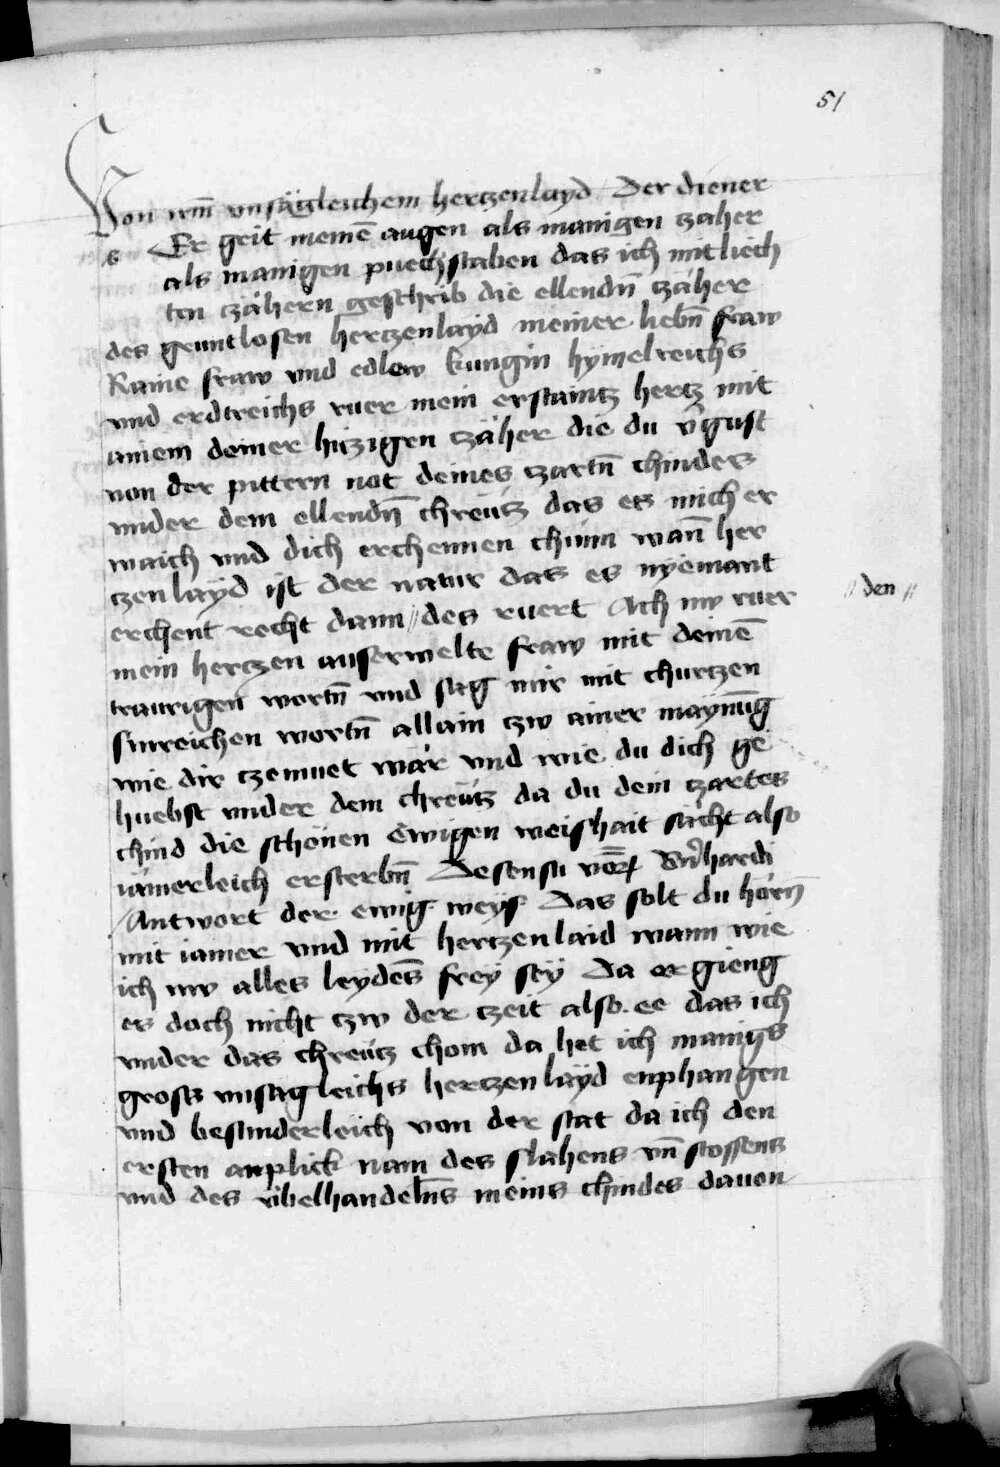 51
Von irm̄ unsägleichem hertzenlayd Der diener
s Er geit meinē augen als manigen zaher
als manigen puechstaben das ich mit liech
ten czähern geschrib die ellendn̄ zäher
des gruntlosen hertzenlayd meiner liebn̄ fraw
Raine fraw vnd edlew kungin hymelreichs
vnd erdtreichs ruer mein erstaintz hertz mit
ainem deiner hiczigen czäher die du v̄gust
von der pittern not deines czartn̄ chindes
vnder dem ellendn̄ chreutz das es mich er
waich vnd dich erchennen chünn wan̄ her
czenlayd ist der natur das es nyemant
erchent recht dann // des ruert Ach nw ruer
// den //
mein hertzen auserwelte fraw mit deinē
traurigen wortn̄ vnd sag mir mit churtzen
sinreichen wortn̄ allain czw ainer maynūg
wie dir czemuet wär vnd wie du dich ge
huebst vnder dem chreutz da du dein czartes
chind die schönen ewigen weishait sächt also
iämerleich ersterbn̄
Antwort der ewig weys Das solt du hörn̄
mit iamer vnd mit hertzenlaid wann wie
ich nw alles leydēs frey sey Da ergieng
es doch nicht czw der czeit also. ee das ich
vnder das chreutz chom da het ich manigs
gross vnsagleichs hertzenlayd enphangen
vnd besunderleich von der stat da ich den
ersten anplick nam des slahens vn̄ stossens
vnd des vbelhandelns̄ meins chindes dauon